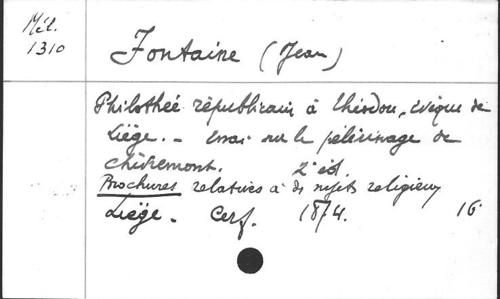 Mél.
1310
Fontaine (Jean)
Philothée républicain à Théodou, évêque de
Liège. - Essai sur le pèlerinage de
Chèvremont. 2e éd.
Brochures relatives à des sujets religieux
Liège. Cerf. 1874. 16°